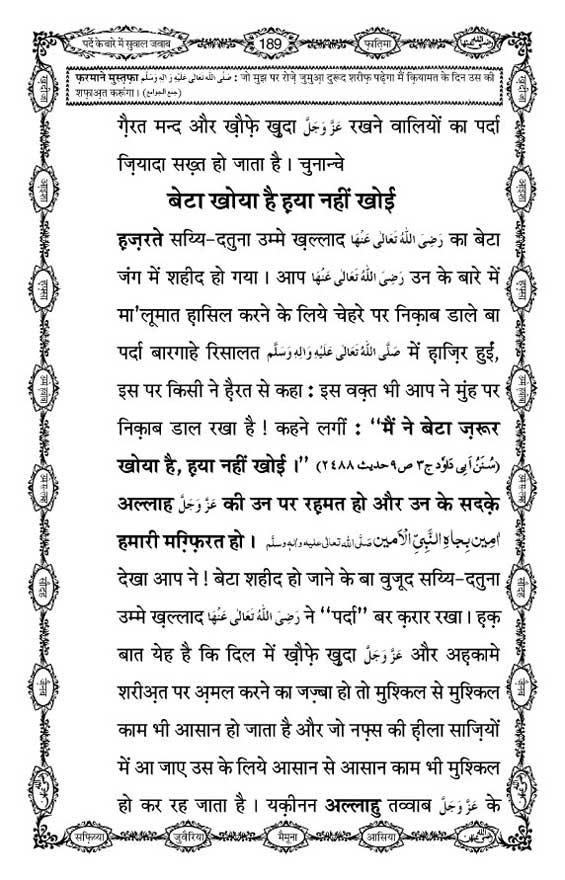 पर्दे के बारे में सुवाल जवाब
189
फ़ातिमा
फ़रमाने मुस्तफ़ा صَلَّى اللهُ تَعَالٰى عَلَيْهِ وَاٰلِهٖ وَسَلَّم : जो मुझ पर रोज़े जुमुआ़ दुरूद शरीफ़ पढ़ेगा मैं क़ियामत के दिन उस की
शफ़ाअ़त करूंगा। (جمع الجوامع)
ग़ैरत मन्द और ख़ौफ़े ख़ुदा عَزَّوَجَلَّ रखने वालियों का पर्दा
ज़ियादा सख़्त हो जाता है। चुनान्चे
बेटा खोया है ह़या नहीं खोई
ह़ज़रते सय्यि-दतुना उम्मे ख़ल्लाद رَضِىَ اللهُ تَعَالٰى عَنْهَا का बेटा
जंग में शहीद हो गया। आप رَضِىَ اللهُ تَعَالٰى عَنْهَا उन के बारे में
मा'लूमात ह़ासिल करने के लिये चेहरे पर निक़ाब डाले बा
पर्दा बारगाहे रिसालत صَلَّى اللهُ تَعَالٰى عَلَيْهِ وَاٰلِهٖ وَسَلَّم में ह़ाज़िर हुईं,
इस पर किसी ने ह़ैरत से कहा : इस वक़्त भी आप ने मुंह पर
निक़ाब डाल रखा है ! कहने लगीं : “मैं ने बेटा ज़रूर
खोया है, ह़या नहीं खोई।” (سُنَنُ اَبِی دَاوٗد ج٣ ص٩ حدیث ٢٤٨٨)
अल्लाह عَزَّوَجَلَّ की उन पर रह़मत हो और उन के सदक़े
हमारी मग़्फ़िरत हो। اٰمِين بِجَاهِ النَّبِيِّ الْاَمين صَلَّى اللهُ تعالٰى عليه واٰله وسلَّم
देखा आप ने ! बेटा शहीद हो जाने के बा वुजूद सय्यि-दतुना
उम्मे ख़ल्लाद رَضِىَ اللهُ تَعَالٰى عَنْهَا ने “पर्दा” बर क़रार रखा। ह़क़
बात येह है कि दिल में ख़ौफ़े ख़ुदा عَزَّوَجَلَّ और अह़कामे
शरीअ़त पर अ़मल करने का जज़्बा हो तो मुश्किल से मुश्किल
काम भी आसान हो जाता है और जो नफ़्स की ह़ीला साज़ियों
में आ जाए उस के लिये आसान से आसान काम भी मुश्किल
हो कर रह जाता है। यक़ीनन अल्लाहु तव्वाब عَزَّوَجَلَّ के
सफ़िय्या
जुवैरिया
मैमूना
आसिया